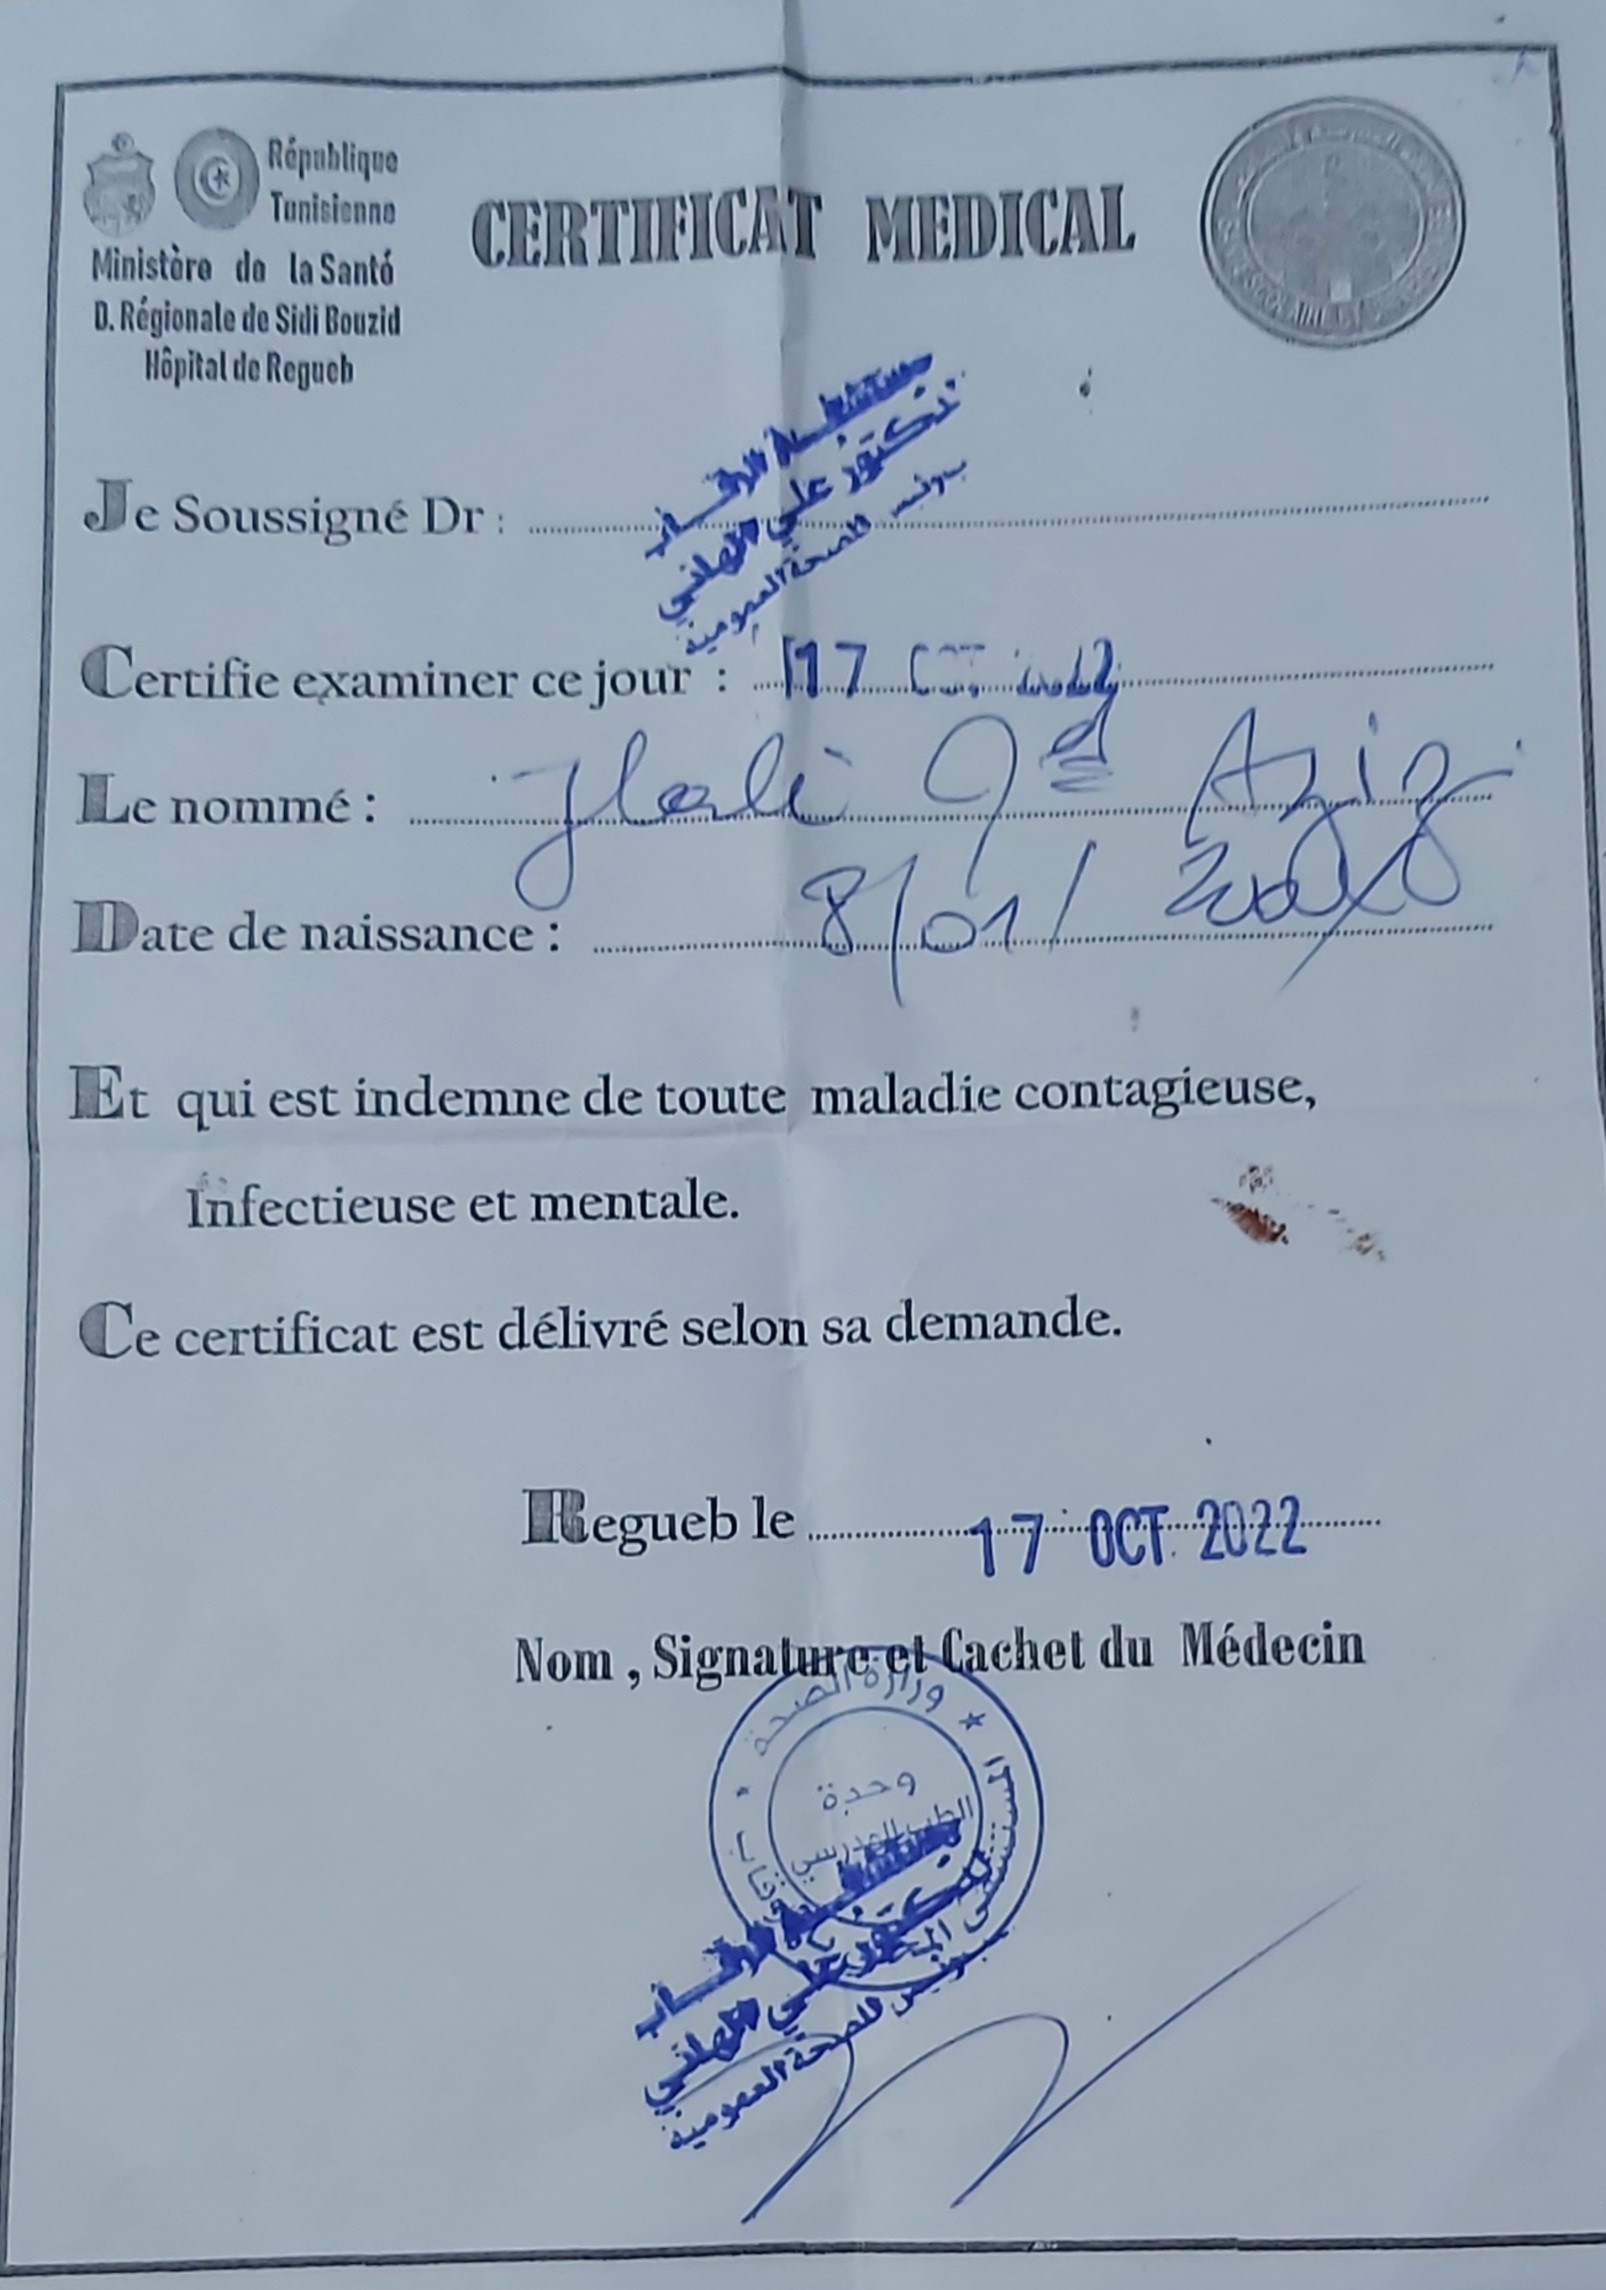 République
Tunisienne
Ministère de la Santé
D. Régionale de Sidi Bouzid
Hôpital de Regueb
CERTIFICAT MEDICAL
Je Soussigné Dr :
الدكتور علي الهاني
للصحة العمومية
Certifie examiner ce jour : 17 OCT. 2022
Le nommé : Aziz
Date de naissance : 8/01/
Et qui est indemne de toute maladie contagieuse,
Infectieuse et mentale.
Ce certificat est délivré selon sa demande.
Regueb le 17 OCT. 2022
Nom , Signature et Cachet du Médecin
وزارة الصحة
وحدة
الطب المدرسي
الدكتور علي الهاني
للصحة العمومية